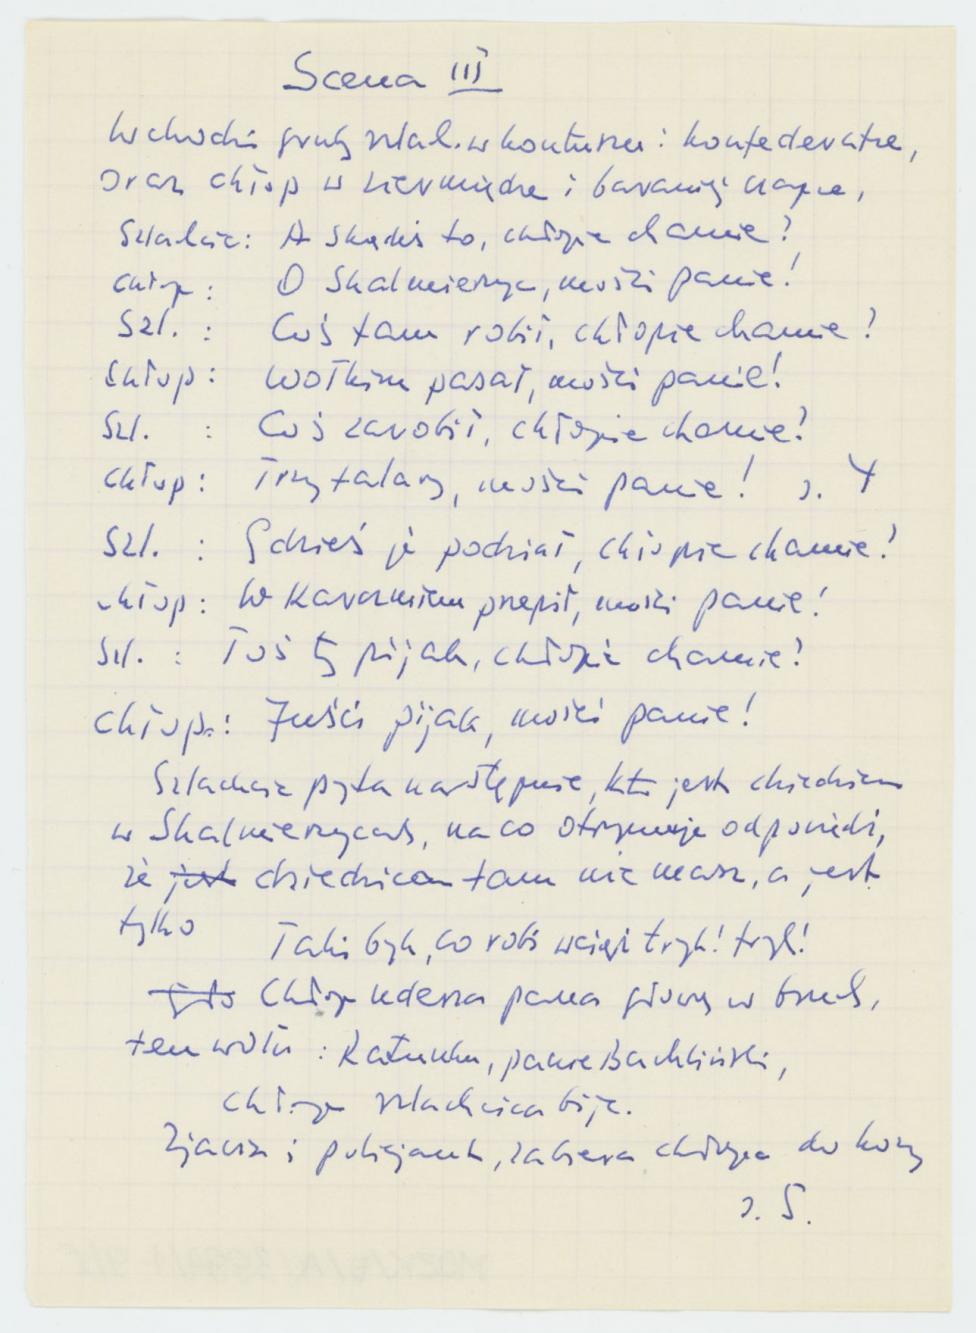 Scena III
Wchodzi gruby szlal. w kontuszu i konfederatce,
oraz chłop w siermiędze i baraniej czapce,
Szlachcic: A skądeś to, chłopie chamie?
Chłop: O Skalmierzyc, mości panie!
Szl.: Coś tam robił, chłopie chamie?
Chłop: Wołkim pasał, mości panie!
Szl.: Coś zarobił, chłopie chamie?
Chłop: Trzy talary, mości panie! s. 4
Szl.: Gdzieś je podział, chłopie chamie?
Chłop: W Karczmiem przepił, mości panie!
Szl.: Toś ty pijak, chłopie chamie?
Chłop.: Juści pijak, mości panie!
Szlachcic pyta następnie, kto jest dziedzicem
w Skalmierzycach, na co otrzymuje odpowiedź,
że jest dziedzica tam nie masz, a jest
tylko
Taki byk, co robi wciąż tryk! tryk!
Chłop uderza pana głową w brzuch,
ten woła: Ratunku, panie Bachliński,
chłop szlachcica bije.
Zjawia się policjant, zabiera chłopa do kozy
s. 5.